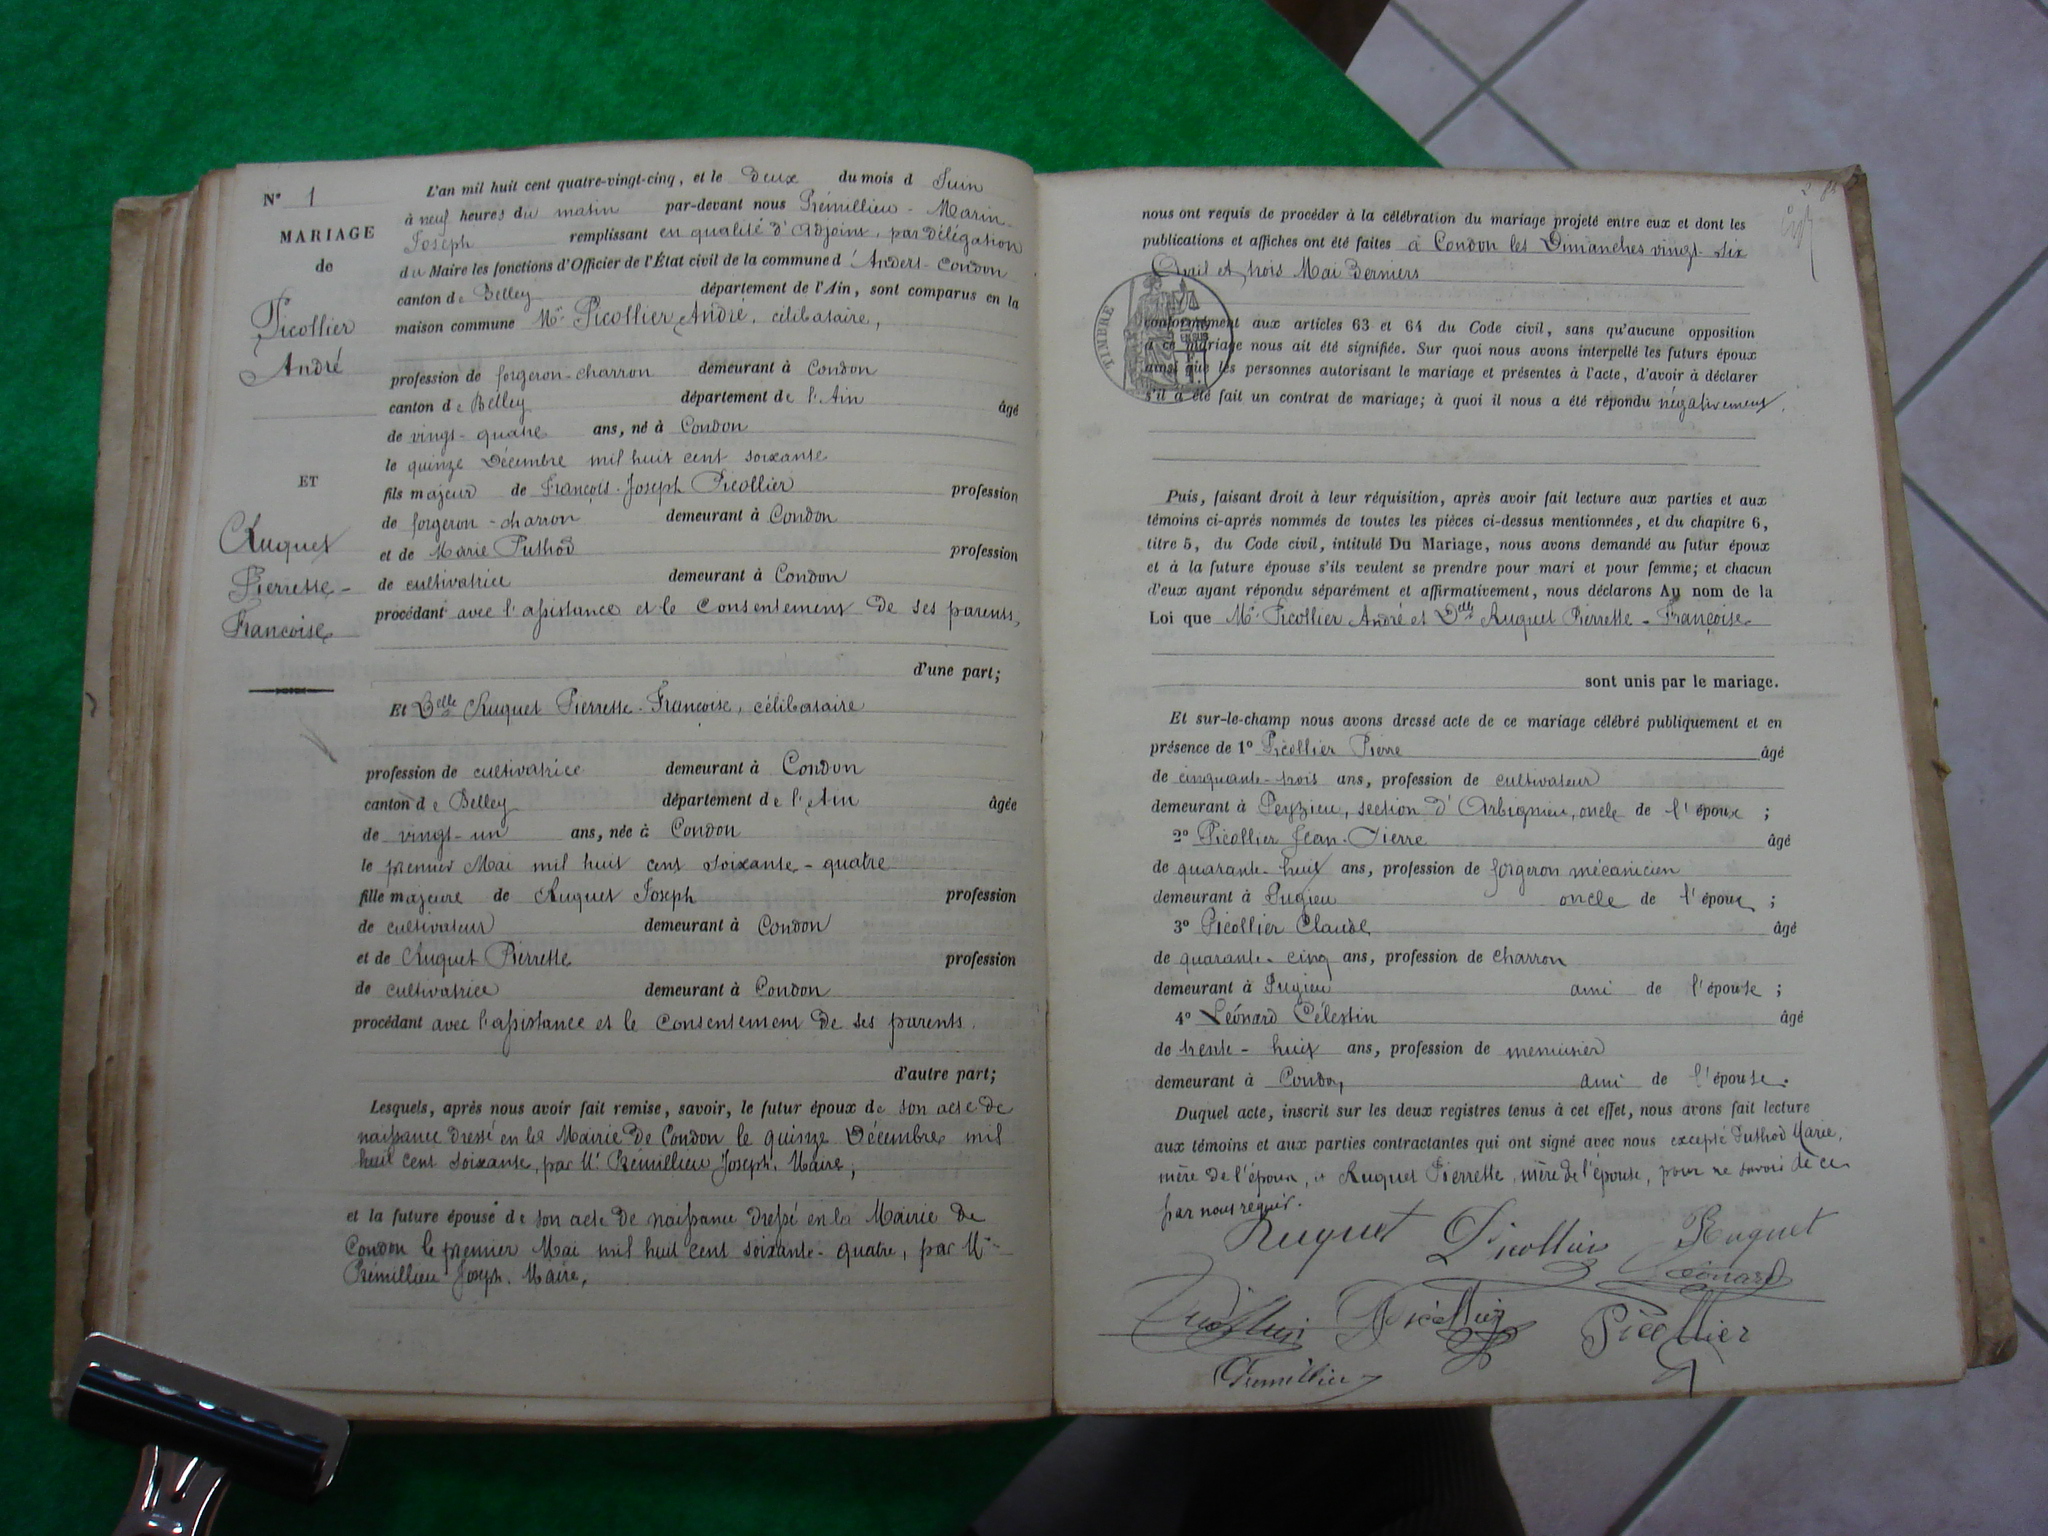 N° 1
MARIAGE
de
Picollier
André
ET
Ruquet
Pierrette-
Françoise
L'an mil huit cent quatre-vingt-cinq, et le deux du mois d Juin
à neuf heures du matin par-devant nous Prémillieu - Marin-
Joseph remplissant en qualité d'Adjoint, par délégation
du Maire les fonctions d'Officier de l'État civil de la commune d'Andert-Condon
canton de Belley département de l'Ain, sont comparus en la
maison commune Mr Picollier André, célibataire,
profession de forgeron-charron demeurant à Condon
canton de Belley département de l'Ain âgé
de vingt-quatre ans, né à Condon
le quinze Décembre mil huit cent soixante
fils majeur de François-Joseph Picollier profession
de forgeron-charron demeurant à Condon
et de Marie Puthod profession
de cultivatrice demeurant à Condon
procédant avec l'assistance et le consentement de ses parents,
d'une part;
Et Delle Ruquet Pierrette-Françoise, célibataire
profession de cultivatrice demeurant à Condon
canton de Belley département de l'Ain âgée
de vingt-un ans, née à Condon
le premier Mai mil huit cent soixante-quatre
fille majeure de Ruquet Joseph profession
de cultivateur demeurant à Condon
et de Ruquet Pierrette profession
de cultivatrice demeurant à Condon
procédant avec l'assistance et le consentement de ses parents.
d'autre part;
Lesquels, après nous avoir fait remise, savoir, le futur époux de son acte de
naissance dressé en la Mairie de Condon le quinze Décembre mil
huit cent soixante, par Mr Prémillieu Joseph, Maire,
et la future épouse de son acte de naissance dressé en la Mairie de
Condon le premier Mai mil huit cent soixante-quatre, par Mr
Prémillieu Joseph, Maire,
nous ont requis de procéder à la célébration du mariage projeté entre eux et dont les
publications et affiches ont été faites à Condon les Dimanches vingt-six
Avril et trois Mai derniers
TIMBRE
conformément aux articles 63 et 64 du Code civil, sans qu'aucune opposition
à ce mariage nous ait été signifiée. Sur quoi nous avons interpellé les futurs époux
ainsi que les personnes autorisant le mariage et présentes à l'acte, d'avoir à déclarer
s'il a été fait un contrat de mariage; à quoi il nous a été répondu négativement.
Puis, faisant droit à leur réquisition, après avoir fait lecture aux parties et aux
témoins ci-après nommés de toutes les pièces ci-dessus mentionnées, et du chapitre 6,
titre 5, du Code civil, intitulé Du Mariage, nous avons demandé au futur époux
et à la future épouse s'ils veulent se prendre pour mari et pour femme; et chacun
d'eux ayant répondu séparément et affirmativement, nous déclarons Au nom de la
Loi que Mr Picollier André et Delle Ruquet Pierrette-Françoise
sont unis par le mariage.
Et sur-le-champ nous avons dressé acte de ce mariage célébré publiquement et en
présence de 1° Picollier Pierre âgé
de cinquante-trois ans, profession de cultivateur
demeurant à Peyzieu, section d'Arbignieu, oncle de l'époux ;
2° Picollier Jean-Pierre âgé
de quarante-huit ans, profession de forgeron mécanicien
demeurant à Pugieu oncle de l'époux ;
3° Picollier Claude âgé
de quarante-cinq ans, profession de charron
demeurant à Pugieu ami de l'épouse ;
4° Léonard Célestin âgé
de trente-huit ans, profession de menuisier
demeurant à Condon, ami de l'épouse.
Duquel acte, inscrit sur les deux registres tenus à cet effet, nous avons fait lecture
aux témoins et aux parties contractantes qui ont signé avec nous excepté Puthod Marie,
mère de l'époux, et Ruquet Pierrette, mère de l'épouse, pour ne savoir de ce
par nous requis.
Ruquet Picollier Ruquet
Léonard
Picollier Picollier Picollier
Prémillieu